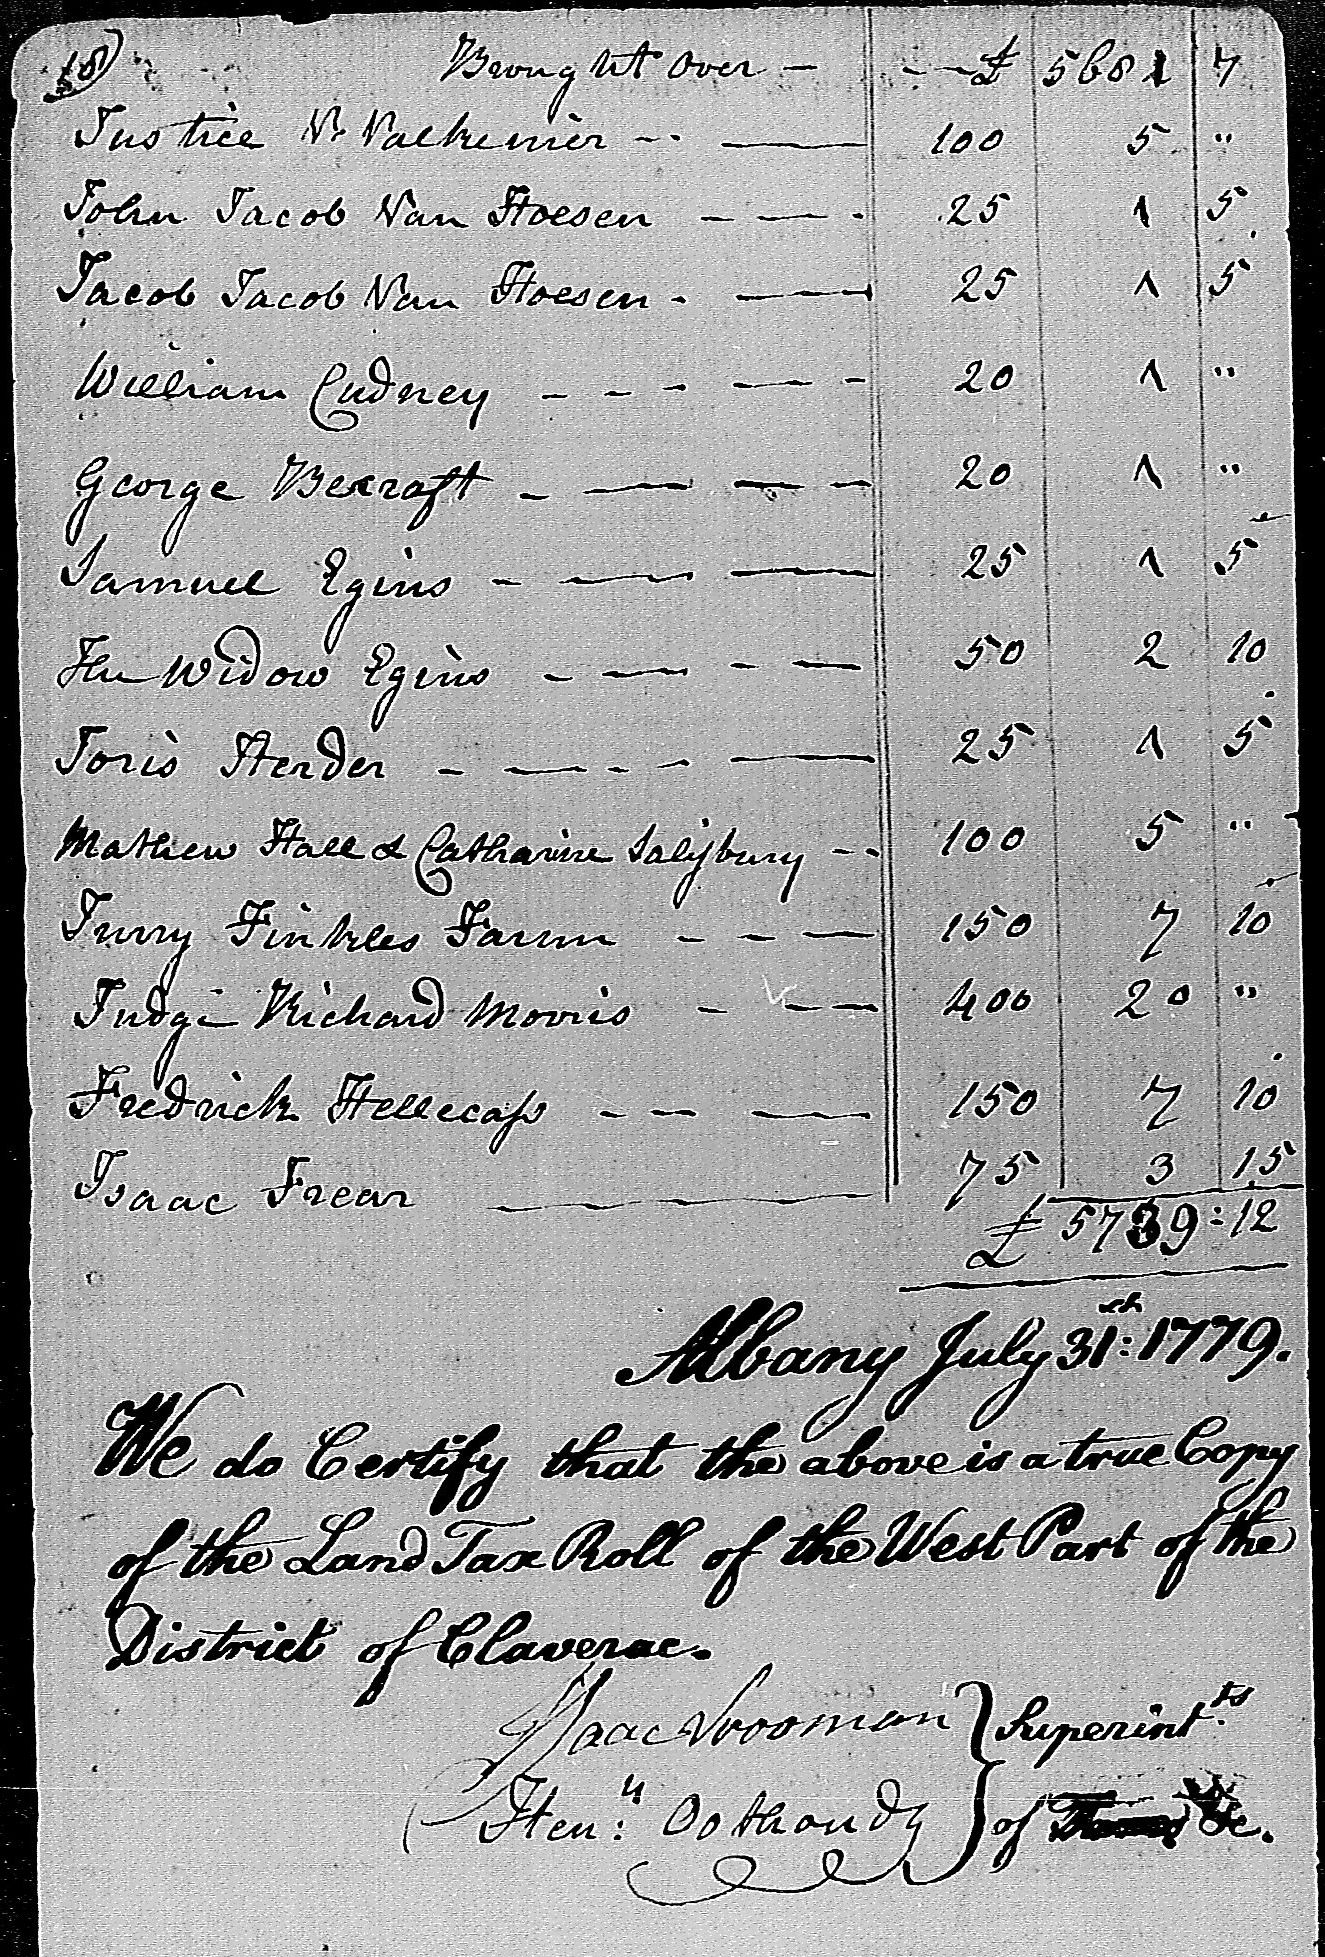 Brought Over — £ 5681 7
Justice V. Valkenier 100 5 "
John Jacob Van Hoesen 25 1 5
Jacob Jacob Van Hoesen 25 1 5
William Cudney 20 1 "
George Bexraft 20 1 "
Samuel Egins 25 1 5
The Widow Egins 50 2 10
Joris Herder 25 1 5
Mathew Hall & Catharine Salisbury 100 5 "
Jurry Finkles Farm 150 7 10
Judge Richard Morris 400 20 "
Fredrick Hellecass 150 7 10
Isaac Frear 75 3 15
£ 5739:12
Albany July 31st: 1779.
We do Certify that the above is a true Copy
of the Land Tax Roll of the West Part of the
District of Claverac.
Isaac Vrooman } Superint.ts
Hen:y Oothoudt } of &c.